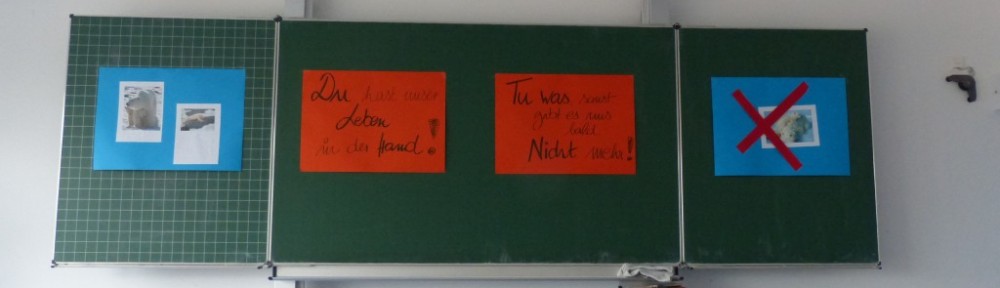 Du hast unser
Leben
in der Hand!
Tu was sonst
gibt es uns
bald
Nicht mehr!